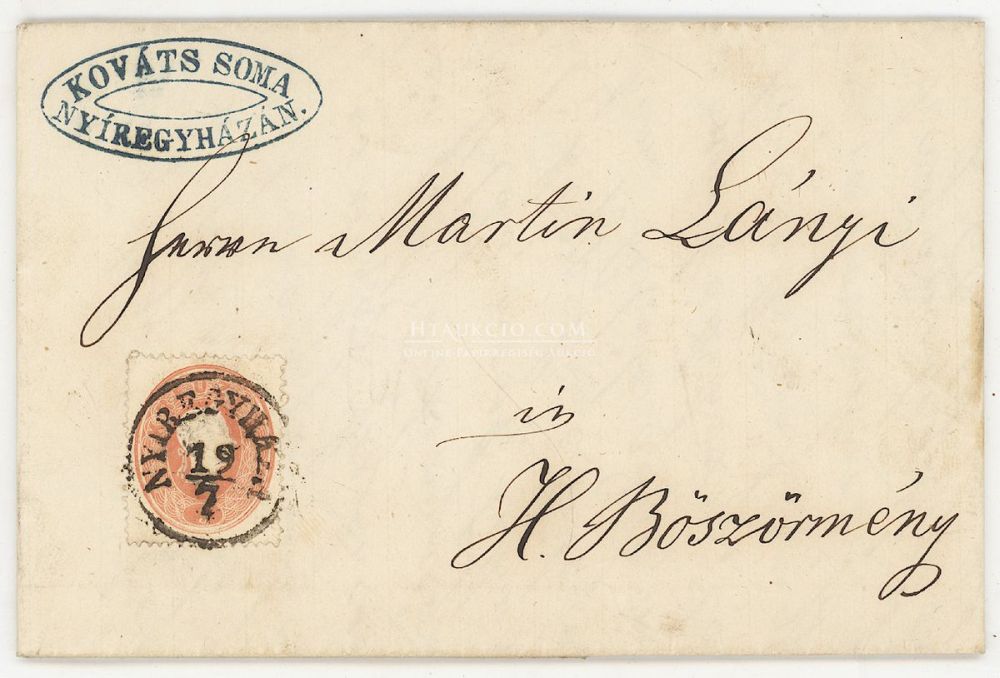 KOVÁTS SOMA
NYÍREGYHÁZÁN.
Herrn Martin Lányi
HTAUKCIO.COM
ONLINE PAPÍRRÉGISÉG AUKCIÓ
NYIREGYHÁZA
19
7
in
H. Böszörmény